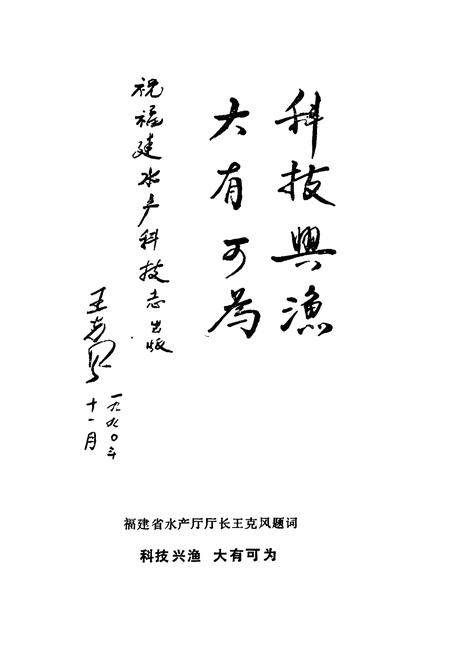 科技興漁
大有可為
祝福建水产科技志出版
王克风
一九九〇年
十一月
福建省水产厅厅长王克风题词
科技兴渔 大有可为